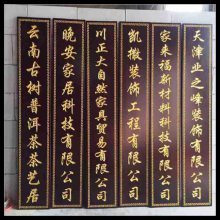 天津业之峰装饰有限公司
家来福新材料科技有限公司
凯撒装饰工程有限公司
川正大自然家具贸易有限公司
晚安家居科技有限公司
云南古树普洱茶茶艺居